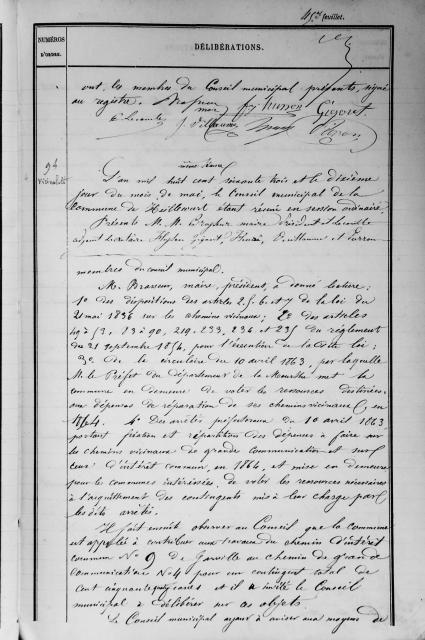 45me feuillet.
NUMÉROS
D'ORDRE.
DÉLIBÉRATIONS.
ont, les membres du Conseil municipal présents, signé
au registre.
Gigout
94
Vicinalité
même séance
L'an mil huit cent soixante trois et le dixième
jour du mois de mai, le Conseil municipal de la
commune de étant réuni en session ordinaire,
Présents M. M. maire président et Lecaille
adjoint secrétaire Gigout, Vuillaume et
membres du conseil municipal.
M. maire, président, a donné lecture:
1o des dispositions des articles 2, 5, 6 et 7 de la loi du
21 mai 1836 sur les chemins vicinaux; 2o des articles
49 à 53, 73 à 90, 219, 233, 234 et 235 du règlement
du 21 septembre 1854, pour l'exécution de la dite loi;
3o de la circulaire du 10 avril 1863, par laquelle
M. le Préfet du département de la Meurthe met la
commune en demeure de voter les ressources destinées
aux dépenses de réparation de ses chemins vicinaux, en
1864. 4o Des arrêtés préfectoraux du 10 avril 1863
portant fixation et répartition des dépenses à faire sur
les chemins vicinaux de grande communication et sur
ceux d'intérêt commun, en 1864, et mise en demeure
pour les communes intéressées, de voter les ressources nécessaires
à l'acquittement des contingents mis à leur charge par
les dits arrêtés.
Il fait ensuite observer au Conseil que la commune
est appelée à contribuer aux travaux du chemin d'intérêt
commun No 9 de au chemin de grande
communication No 4 pour un contingent total de
cent cinquante francs et il a invité le Conseil
municipal à délibérer sur ces objets.
Le Conseil municipal ayant à aviser aux moyens de